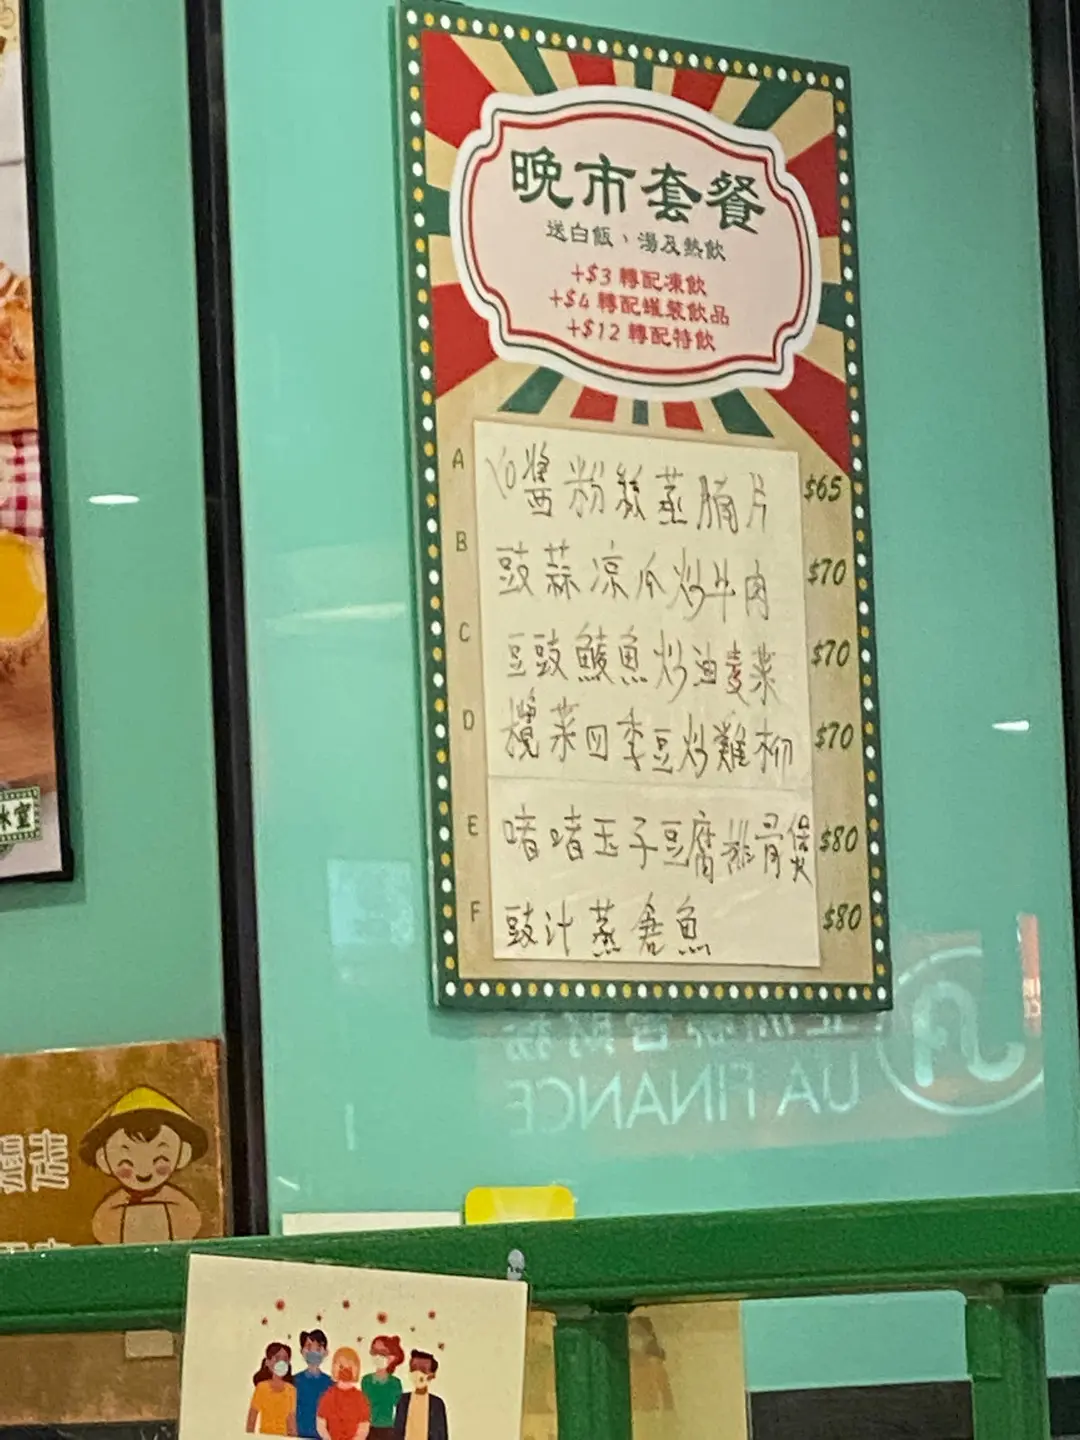 晚市套餐
送白飯、湯及熱飲
+$3 轉配凍飲
+$4 轉配罐裝飲品
+$12 轉配特飲
A XO醬粉絲蒸腩片 $65
B 豉蒜凉瓜炒牛肉 $70
C 豆豉鯪魚炒油麦菜 $70
D 欖菜四季豆炒雞柳 $70
E 啫啫玉子豆腐排骨煲 $80
F 豉汁蒸倉魚 $80
冰室
UA FINANCE